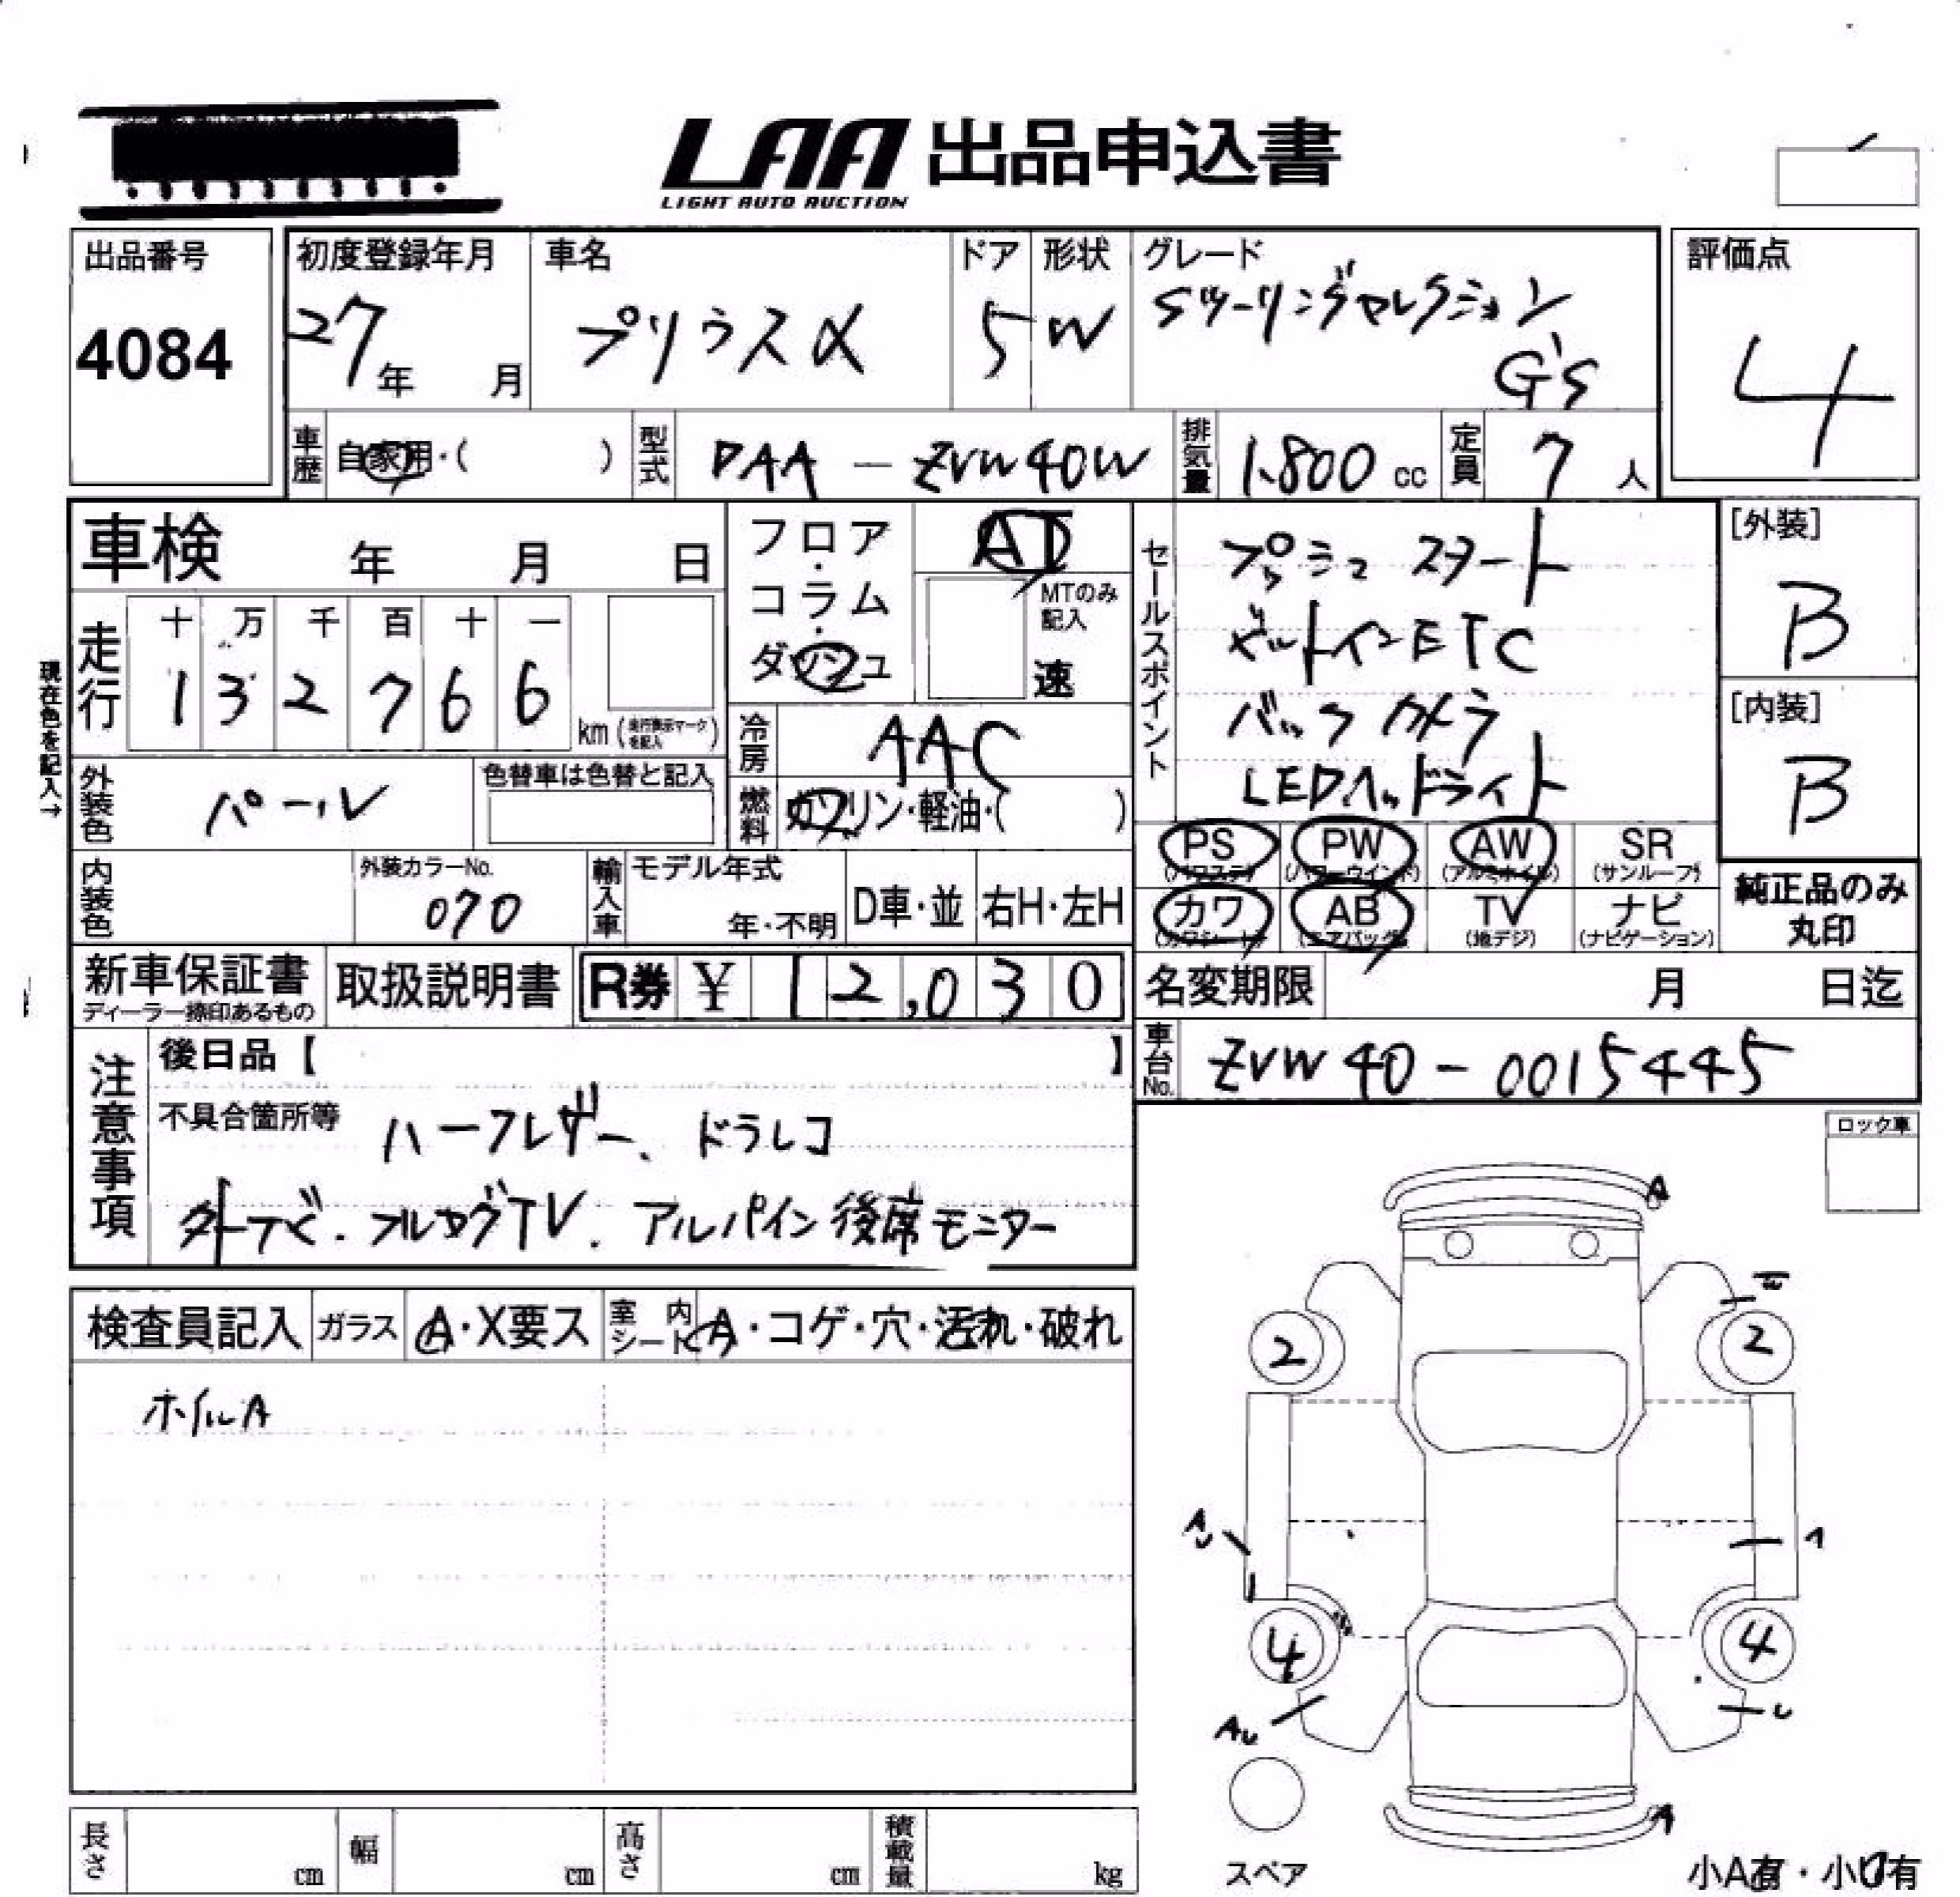 LAA 出品申込書
LIGHT AUTO AUCTION
出品番号
4084
初度登録年月
27年 月
車名
プリウスα
ドア
5
形状
W
グレード
Sツーリングセレクション
G's
評価点
4
車歴
自家用・( )
型式
DAA - ZVW40W
排気量
1.800 cc
定員
7 人
車検 年 月 日
走行
十 万 千 百 十 一
1 3 2 7 6 6
km (走行表示マークを記入)
現在色を記入→
外装色
パール
色替車は色替と記入
内装色
外装カラーNo.
070
輸入車
モデル年式
年・不明
D車・並
右H・左H
フロア・コラム・ダッシュ
AT
MTのみ記入
速
冷房
AAC
燃料
ガソリン・軽油・( )
セールスポイント
プッシュスタート
ビルトインETC
バックカメラ
LEDヘッドライト
[外装]
B
[内装]
B
PS PW AW SR
(パワステ) (パワーウインド) (アルミホイル) (サンルーフ)
カワ AB TV ナビ
(カワシート) (エアバッグ) (地デジ) (ナビゲーション)
純正品のみ
丸印
新車保証書
ディーラー捺印あるもの
取扱説明書
R券 ¥ 12,030
名変期限 月 日迄
車台No.
ZVW40-0015445
注意事項
後日品【 】
不具合箇所等
ハーフレザー、ドラレコ
外ナビ.フルセグTV.アルパイン後席モニター
検査員記入
ガラス
A・X要ス
室内シート
A・コゲ・穴・汚れ・破れ
ホイルA
ロック車
A
2 2
4 4
AU
U
A
スペア
小A有・小U有
長さ cm
幅 cm
高さ cm
積載量 kg